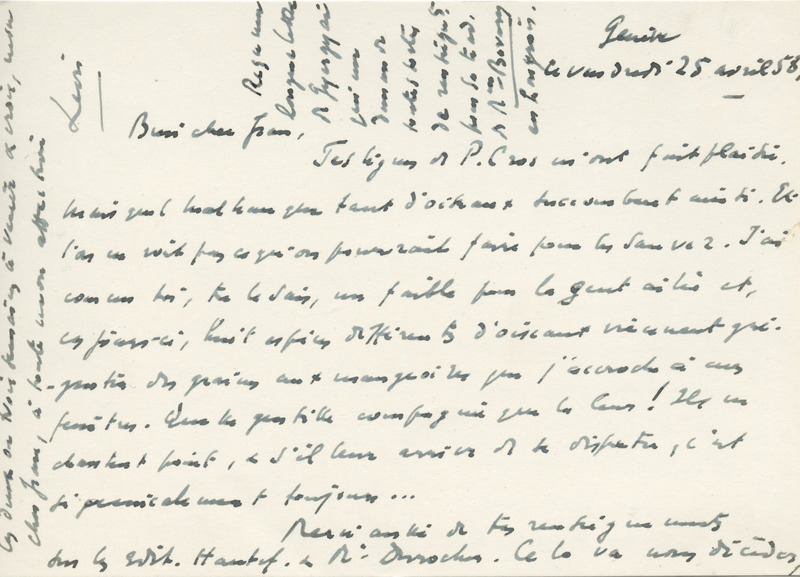 Genève
le vendredi 25 avril 58
Bien cher Jean,
Tes lignes de P. Cros m'ont fait plaisir.
Mais quel malheur que tant d'oiseaux succombent ainsi. Et
l'on ne voit pas ce qu'on pourrait faire pour les sauver. J'ai
comme toi, tu le sais, un faible pour la gent ailée et,
ces jours-ci, huit espèces différentes d'oiseaux viennent
des graines aux mangeoires que j'accroche à mes
fenêtres. Quelle gentille compagnie que la leur! Ils ne
chantent point, s'il leur arrive de se disputer, c'est
si amicalement toujours...
Merci aussi de tes renseignements
sur les Edit. Hautef. Cela va nous décider,
les deux ou trois à venir, à croire, mon
cher Jean, à toute mon affection
Levi
Reçu une
longue lettre
de Gyergyai
qui me
demande
toutes sortes
de renseignts
pour sa trad.
de Bovary
en hongrois.